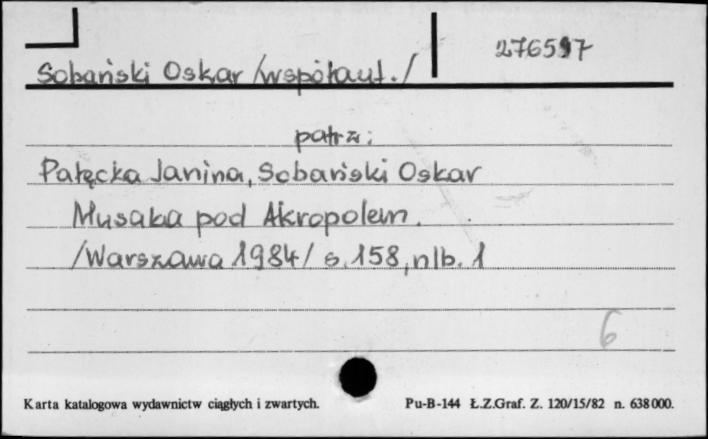 276597
Sobański Oskar /współaut./
patrz:
Pałęcka Janina, Sobański Oskar
Musaka pod Akropolem.
/Warszawa 1984/ s. 158, nlb. 1
6
Karta katalogowa wydawnictw ciągłych i zwartych. Pu-B-144 Ł.Z.Graf. Z. 120/15/82 n. 638000.